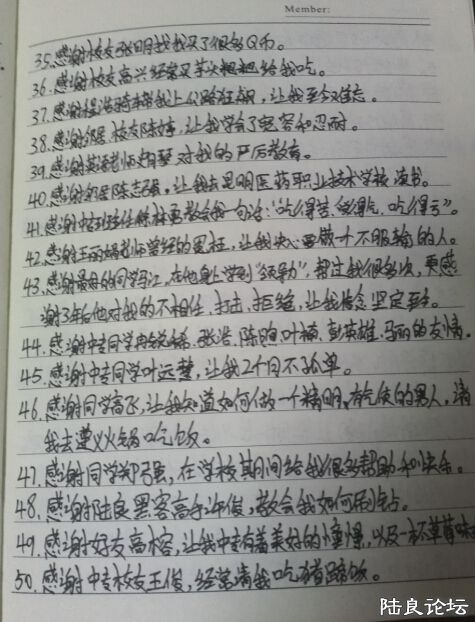 Member:
35.感谢校友张明找我买了很多Q币。
36.感谢校友高兴经常买羊火粑粑给我吃。
37.感谢程浩骑车带我上公路狂飙，让我至今难忘。
38.感谢邻居、校友陈婷，让我学会了宽容和忍耐。
39.感谢英语老师胡琴对我的严厉教育。
40.感谢邻居陈志强，让我去昆明医药职业技术学校读书。
41.感谢中专班主任陈林勇教会我一句话："吃得苦、受得气、吃得亏"。
42.感谢王丽娟老师曾经的冤枉，让我决心要做一个不服输的人。
43.感谢最好的同学马江，在他身上学到"领导力"，帮过我很多次，更感
谢3年后他对我的不相任、打击、拒绝，让我信念坚定至今。
44.感谢中专同学冉锐锦、张浩、陈昫、叶楠、彭英雄、马丽的友情。
45.感谢中专同学叶远慧，让我2个月不孤单。
46.感谢同学高飞，让我知道如何做一个精明、有气侠的男人，请
我去遵义火锅吃饭。
47.感谢同学郑强，在学校其间给我很多帮助和快乐。
48.感谢陆良黑客高手许俊，教会我如何刷钻。
49.感谢好友高木容，让我中专有着美好的憧憬，以及一本草莓味
50.感谢中专校友王俊，经常请我吃猪蹄饭。
陆良论坛